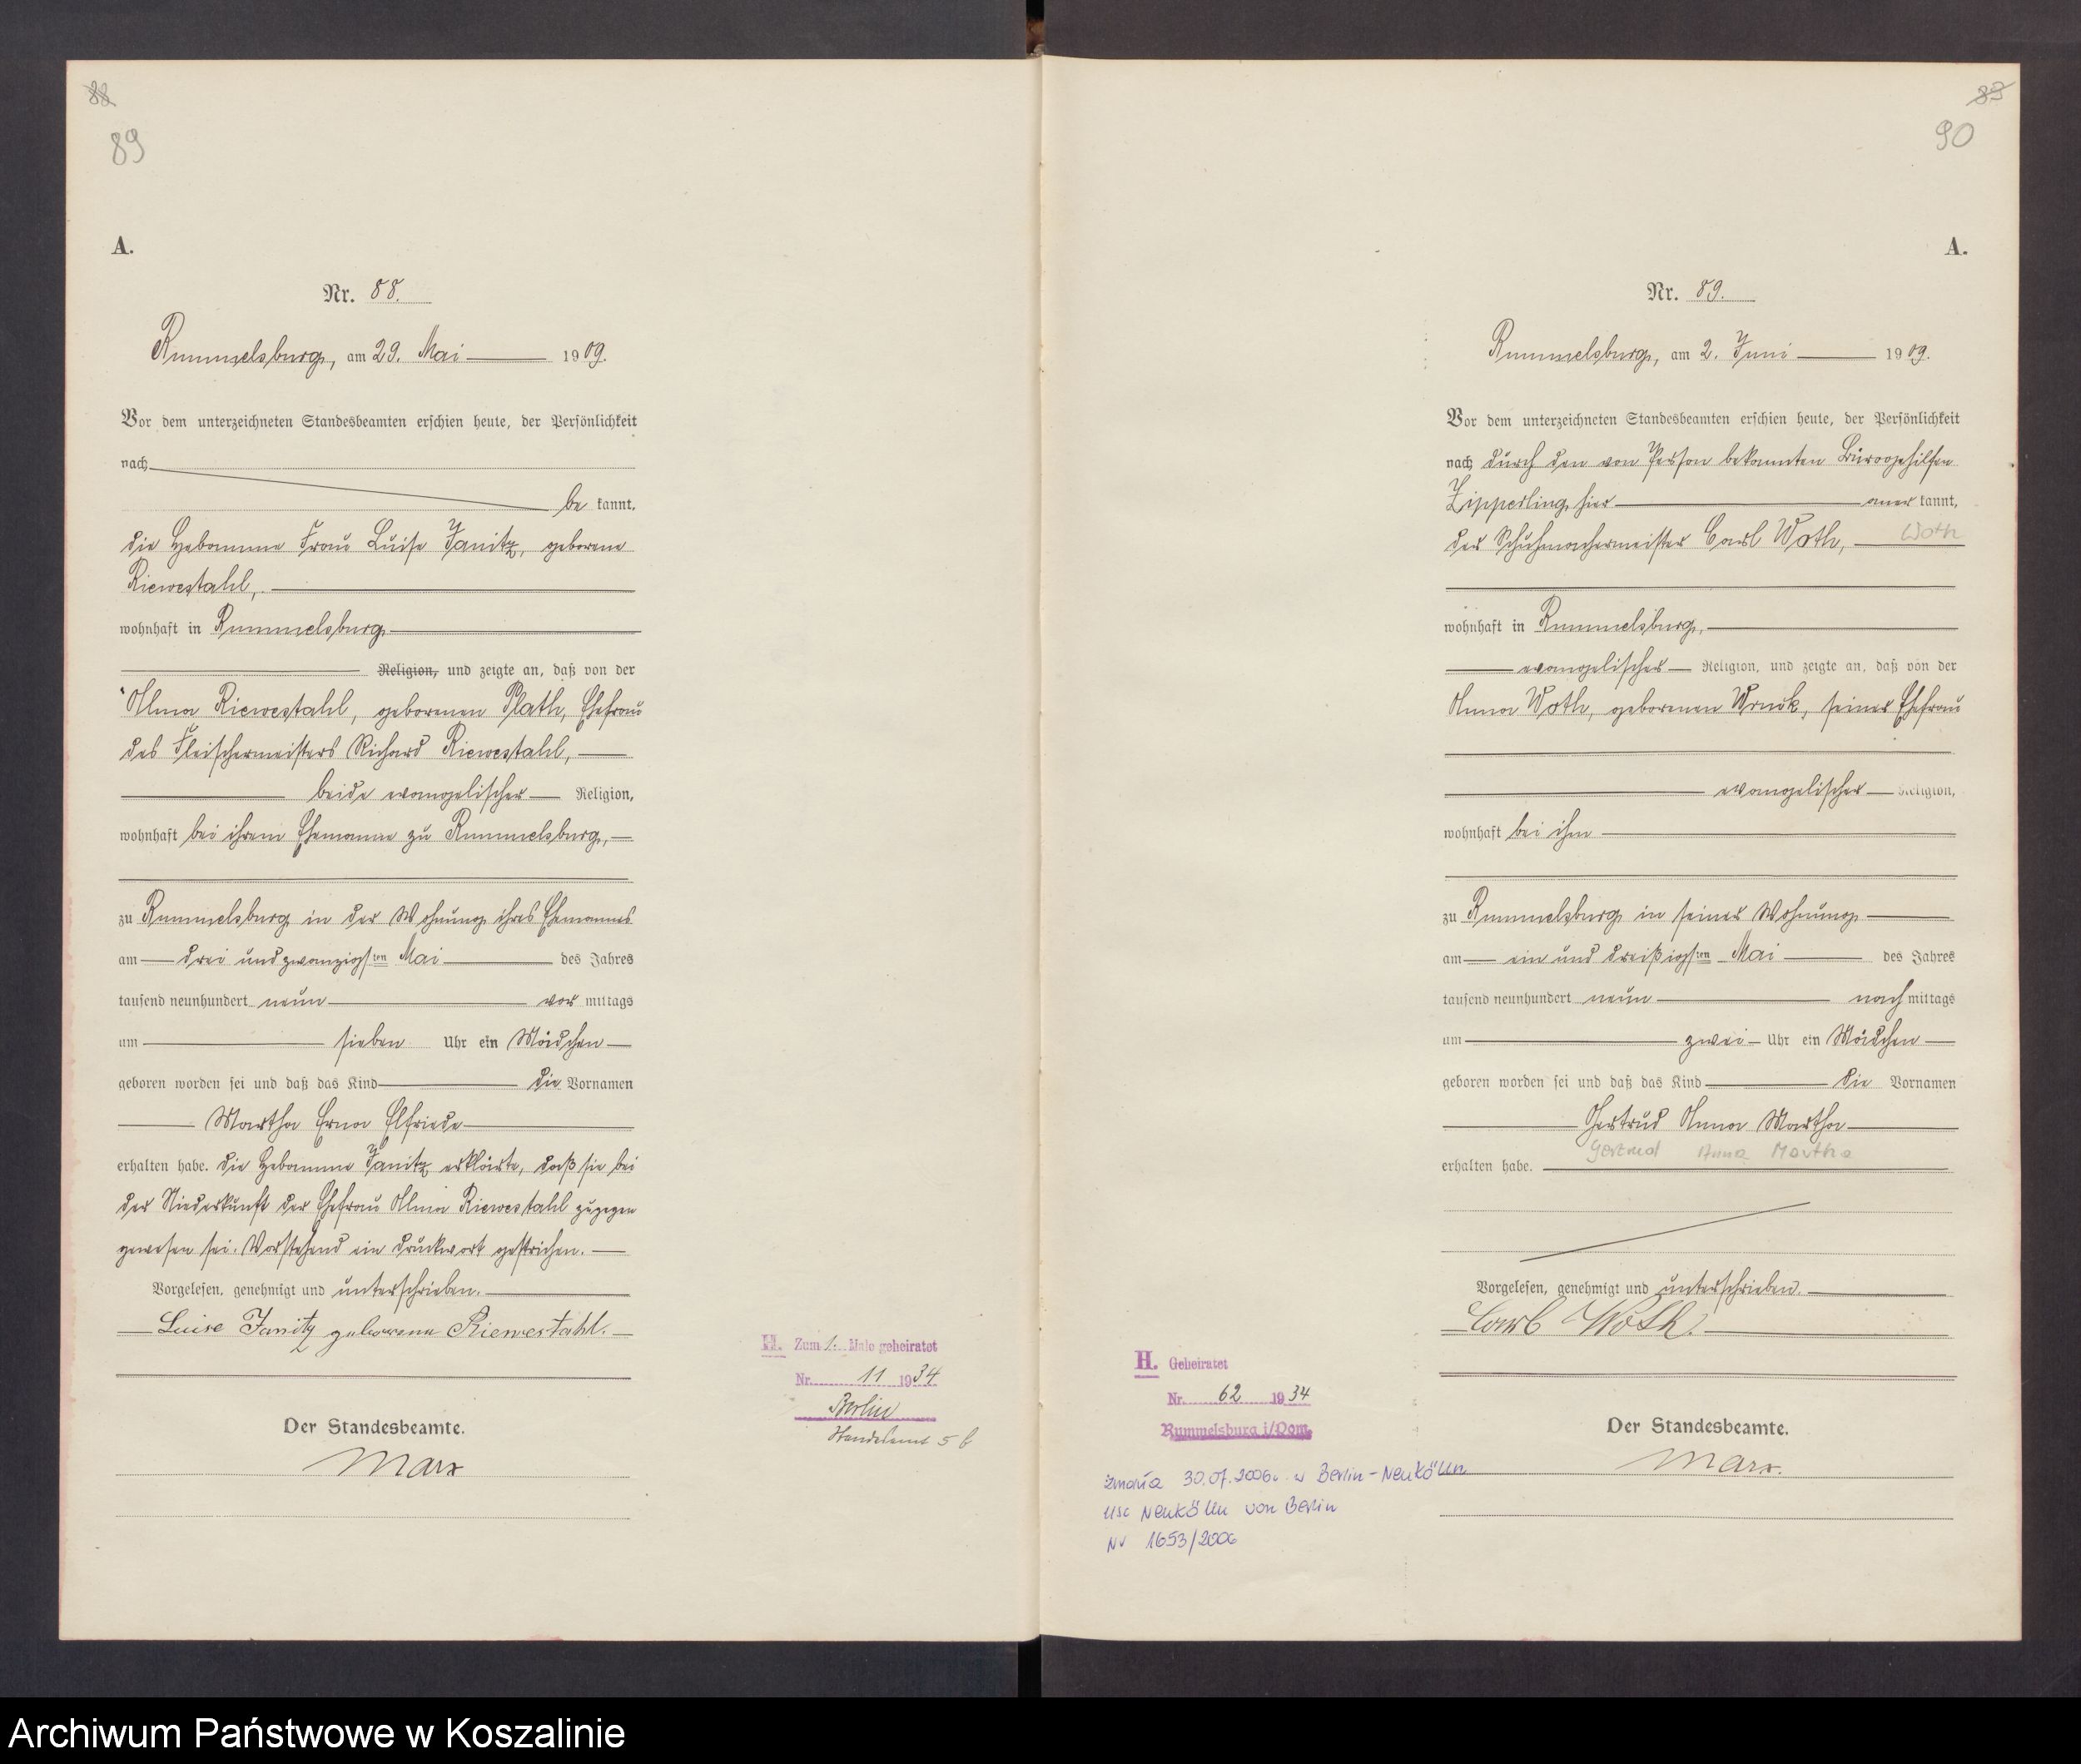 88
89
A.
Nr. 88.
Rummelsburg, am 29. Mai 1909.
Vor dem unterzeichneten Standesbeamten erschien heute, der Persönlichkeit
nach
be kannt,
die Hebamme Frau Luise Janitz, geborene
Riewestahl,
wohnhaft in Rummelsburg
Religion, und zeigte an, daß von der
Alma Riewestahl, geborenen Plath, Ehefrau
des Fleischermeisters Richard Riewestahl,
beide evangelischer Religion,
wohnhaft bei ihrem Ehemanne zu Rummelsburg,
zu Rummelsburg in der Wohnung ihres Ehemannes
am drei und zwanzigsten Mai des Jahres
tausend neunhundert neun vor mittags
um sieben Uhr ein Mädchen
geboren worden sei und daß das Kind die Vornamen
Martha Erna Elfriede
erhalten habe. Die Hebamme Janitz erklärte, daß sie bei
der Niederkunft der Ehefrau Alma Riewestahl zugegen
gewesen sei. Vorstehend ein Druckwort gestrichen.
Vorgelesen, genehmigt und unterschrieben.
Luise Janitz geborene Riewestahl.
Der Standesbeamte.
Marx
H. Zum 1. Male geheiratet
Nr. 11 1934
Berlin
Standesamt 5 b
90
A.
Nr. 89.
Rummelsburg, am 2. Juni 1909.
Vor dem unterzeichneten Standesbeamten erschien heute, der Persönlichkeit
nach durch den von Person bekannten Bürogehilfen
Zipperling hier aner kannt,
der Schuhmachermeister Carl Woth, Woth
wohnhaft in Rummelsburg,
evangelischer Religion, und zeigte an, daß von der
Anna Woth, geborenen Wruck, seiner Ehefrau
evangelischer Religion,
wohnhaft bei ihm
zu Rummelsburg in seiner Wohnung
am ein und dreißigsten Mai des Jahres
tausend neunhundert neun nach mittags
um zwei Uhr ein Mädchen
geboren worden sei und daß das Kind die Vornamen
Gertrud Anna Martha
Gertrud Anna Martha
erhalten habe.
Vorgelesen, genehmigt und unterschrieben.
Carl Woth.
Der Standesbeamte.
Marx.
H. Geheiratet
Nr. 62 1934
Rummelsburg i/Pom.
zmarła 30.07.2006r. w Berlin-Neukölln
USC Neukölln von Berlin
Nr 1653/2006
Archiwum Państwowe w Koszalinie